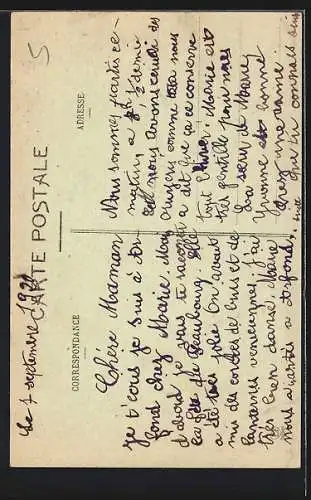 Le 7 septembre
CARTE POSTALE
CORRESPONDANCE
ADRESSE
Chère Maman
je t'écris je suis à Tor-
fond chez Marie. Mais
d'abord je vous te raconte
la fête de Beaubourg. Elle
a été très jolie on avait
mis des cordes de buis et de
lanternes veniennes, j'ai
très bien dansé. Marie
nous a invités a Torfond,
Nous sommes partis ce
matin a demie
nous avons cueilli des
comme nous
a dit que ça se conserve
tout l'hiver. Marie est
très gentille pour nous
La sœur de Marie
Yvonne est bonne
chez une dame
que tu connais